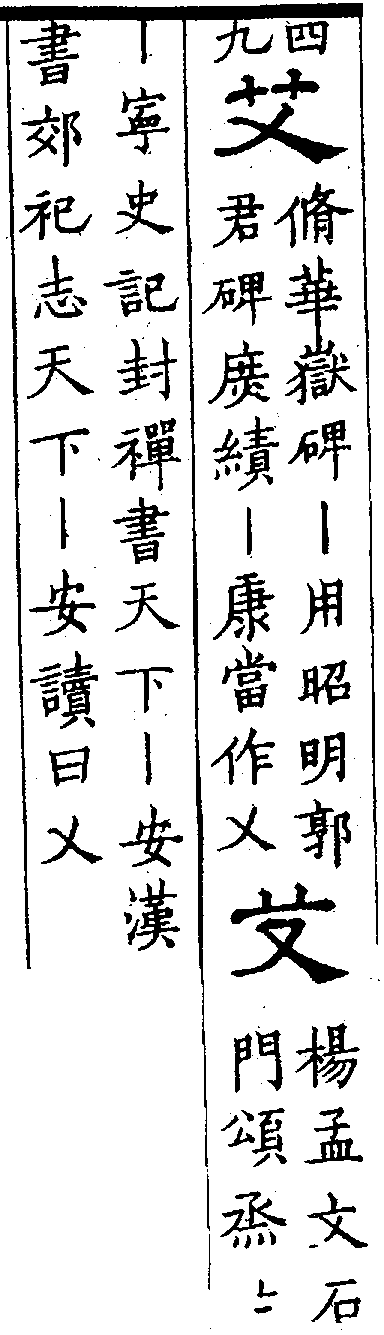 四
九
艾
脩華嶽碑丨用昭明郭
君碑庻績丨康當作乂
艾
楊孟文石
門頌烝〻
丨寧史記封禪書天下丨安漢
書郊祀志天下丨安讀曰乂